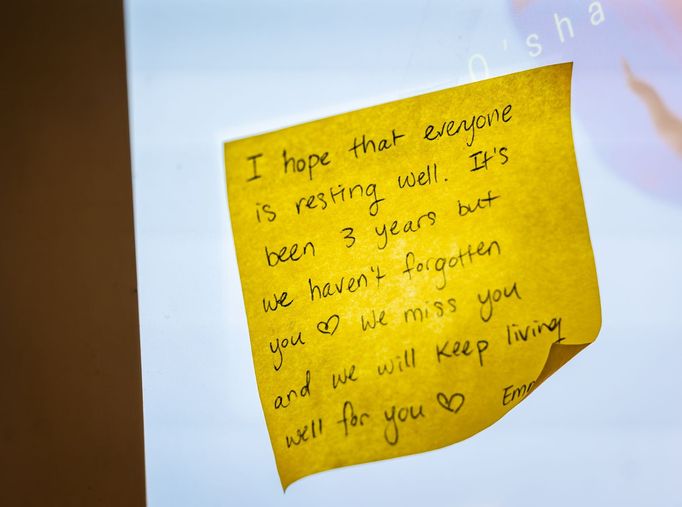 O'sha
I hope that everyone
is resting well. It's
been 3 years but
we haven't forgotten
you ♡ We miss you
and we will keep living
well for you ♡